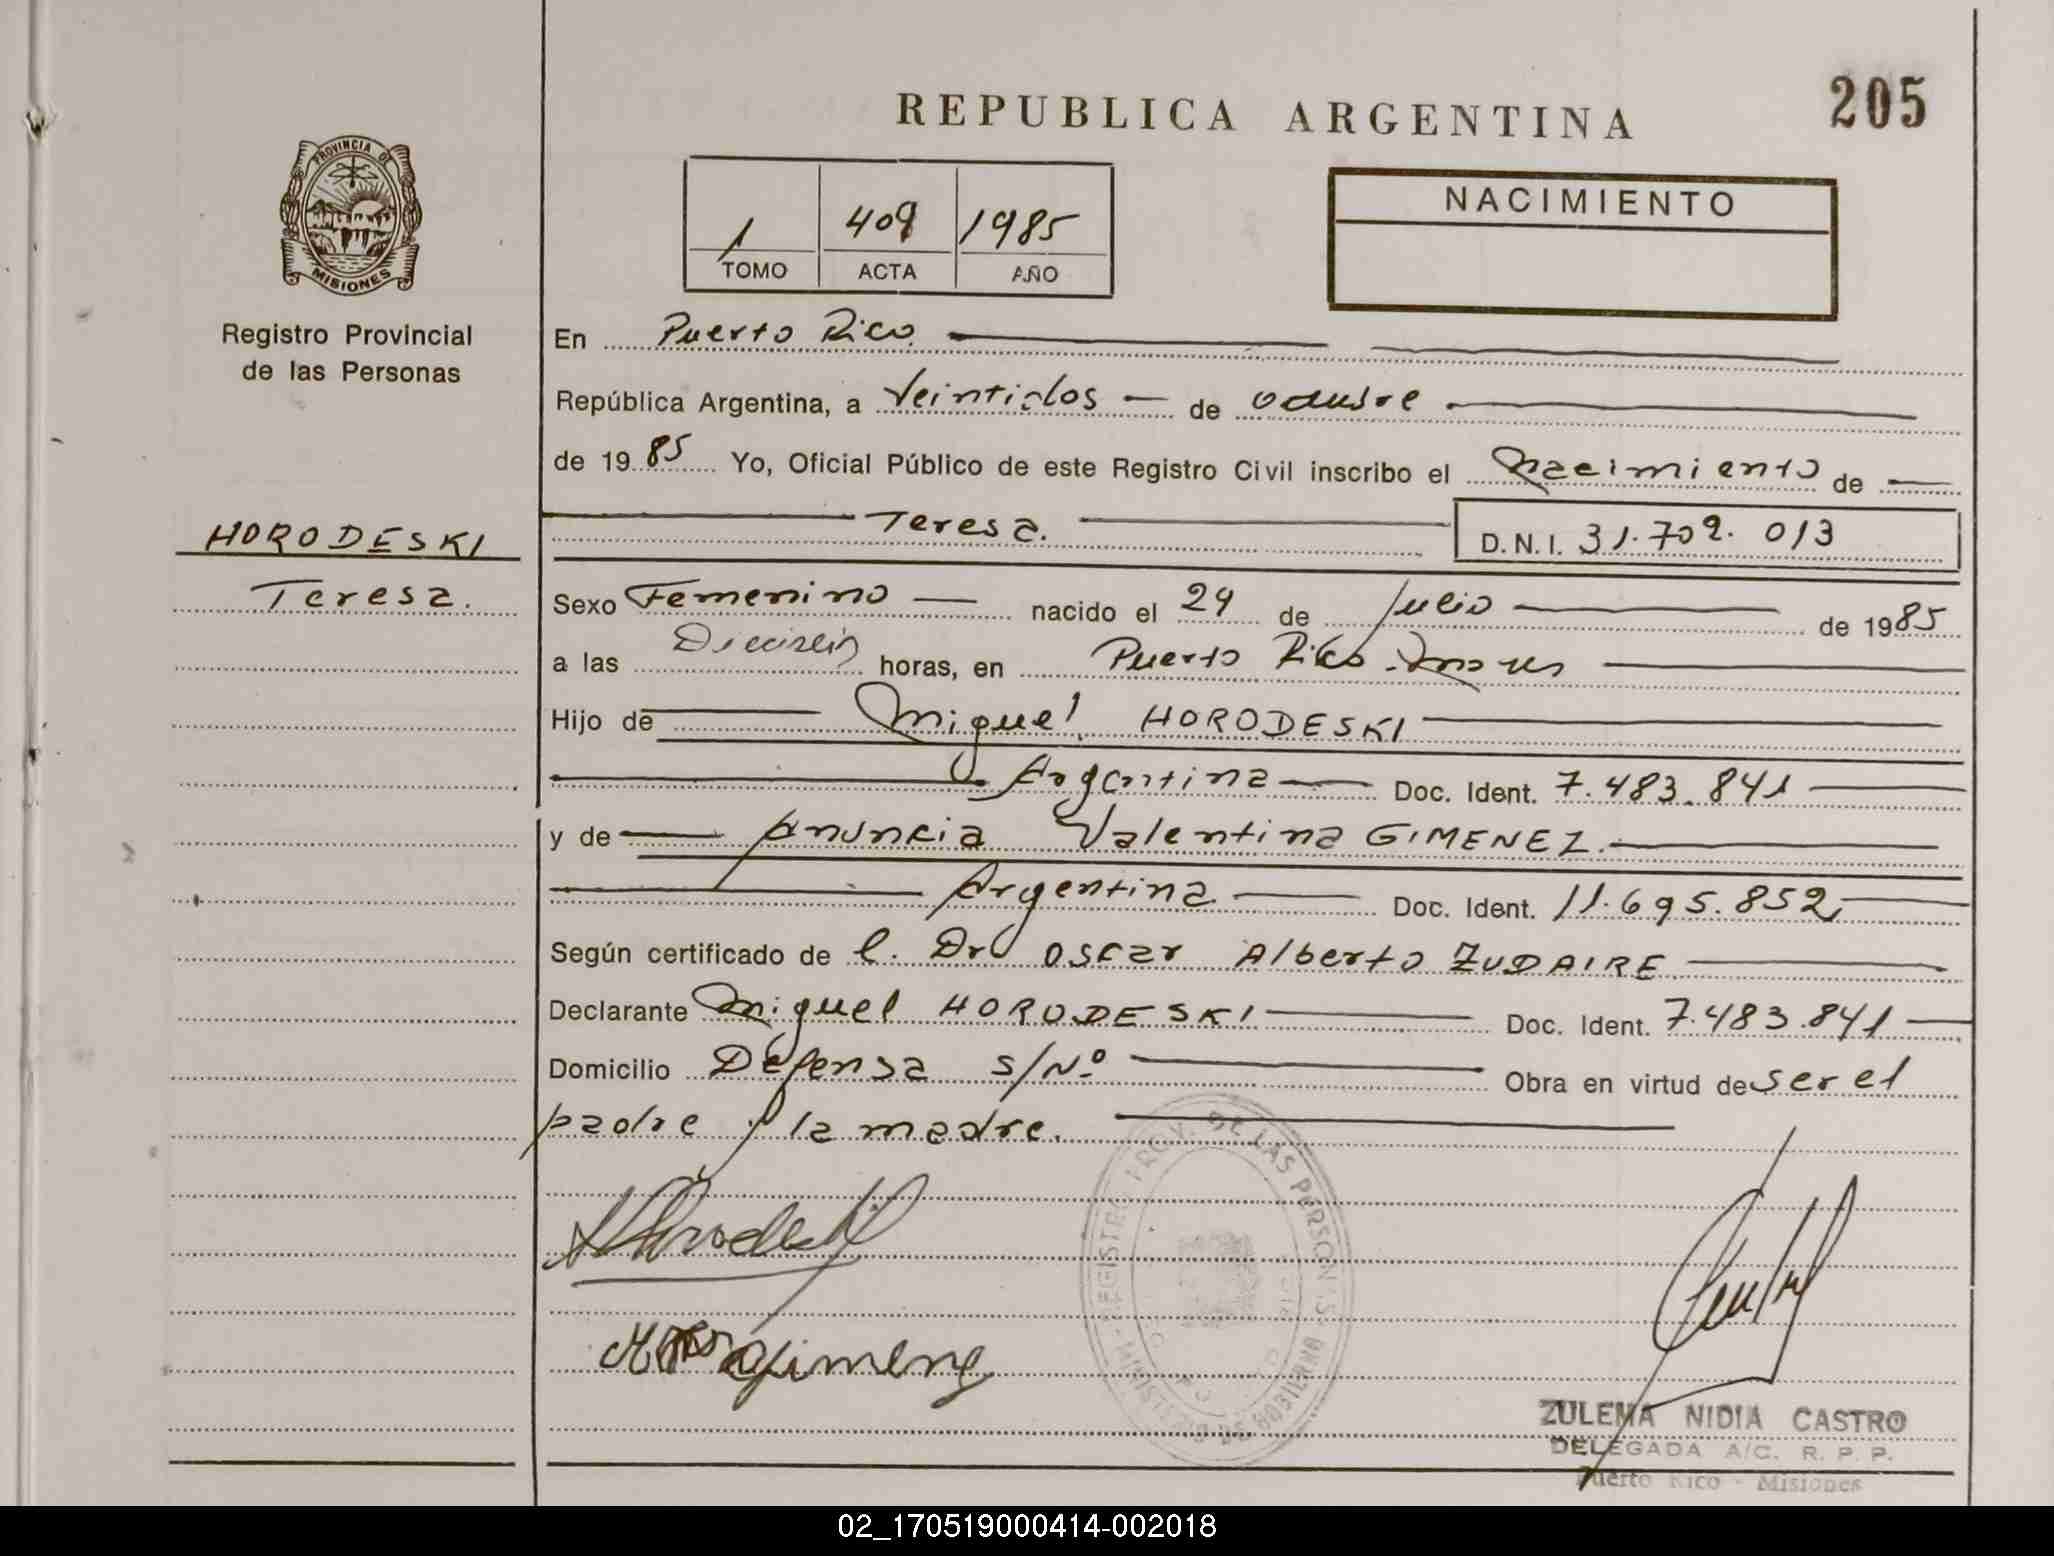 REPUBLICA ARGENTINA
205
PROVINCIA DE
MISIONES
Registro Provincial
de las Personas
1 409 1985
TOMO ACTA AÑO
NACIMIENTO
En Puerto Rico
República Argentina, a Veintidos de octubre
de 1985 Yo, Oficial Público de este Registro Civil inscribo el Nacimiento de
Teresa. D.N.I. 31.709.013
HORODESKI
Teresa.
Sexo Femenino nacido el 29 de Julio de 1985
a las Dieciseis horas, en Puerto Rico
Hijo de Miguel HORODESKI
Argentina Doc. Ident. 7.483.841
y de Anuncia Valentina GIMENEZ.
Argentina Doc. Ident. 11.695.852
Según certificado de l. Dr Oscar Alberto ZUDAIRE
Declarante Miguel HORODESKI Doc. Ident. 7.483.841
Domicilio Defensa s/Nº Obra en virtud de ser el
padre y la madre.
REGISTRO PROV. DE LAS PERSONAS
MINISTERIO DE GOBIERNO
ZULEMA NIDIA CASTRO
DELEGADA A/C. R. P. P.
Puerto Rico - Misiones
02_170519000414-002018